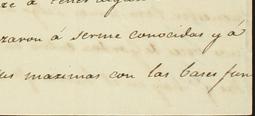 á tener algun
zaron á serme conocidas y á
us maximas con las bases fun